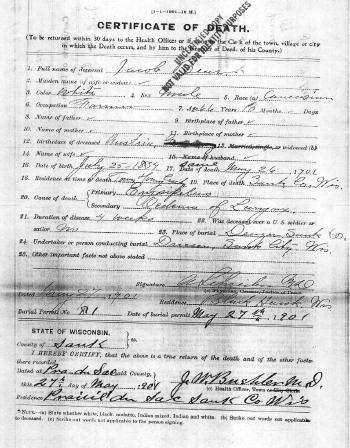 [1—1—1901—10 M.]
CERTIFICATE OF DEATH.
(To be returned within 30 days to the Health Officer or the Clerk of the town, village or city
in which the Death occurs, and by him to the Register of Deeds of his County.)
1. Full name of deceased Jacob
2. Maiden name (if wife or widow)
3. Color White 4. Sex Male 5. Race (a) Caucasian
6. Occupation Farmer 7. Age 66 Years Months Days
8. Name of father 9. Birthplace of father
10. Name of mother 11. Birthplace of mother
12. Birthplace of deceased Austria 13. Married, single, or widowed (b)
14. Name of wife 15. Name of husband
16. Date of birth July 25-1834 17. Date of death May 26 1901
18. Residence at time of death 19. Place of death Sauk Co. Wis.
20. Cause of death Primary
Secondary Oedema of Lungs
21. Duration of disease 4 weeks 22. Was deceased ever a U. S. soldier
or sailor No 23. Place of burial Sauk Co.
24. Undertaker or person conducting burial Sauk City Wis.
25. Other important facts not above stated
Signature M.D.
Dated May 27 1901
Residence Black Hawk Wis
Burial Permit No. 81 Date of burial permit May 27th 1901
STATE OF WISCONSIN, ss.
County of Sauk
I HEREBY CERTIFY, that the above is a true return of the death and of the other facts
there recorded.
Dated at Pra du Sac said County.
this 27th day of May 1901 J. W. Buehler M.D.
(c) Health Officer, Town or City Clerk
Residence Prairie du Sac Sauk Co Wis
* NOTE. (a) State whether white, black, mulatto, Indian mixed, Indian and white. (b) Strike out words not applicable
to deceased. (c) Strike out words not applicable to the person signing.